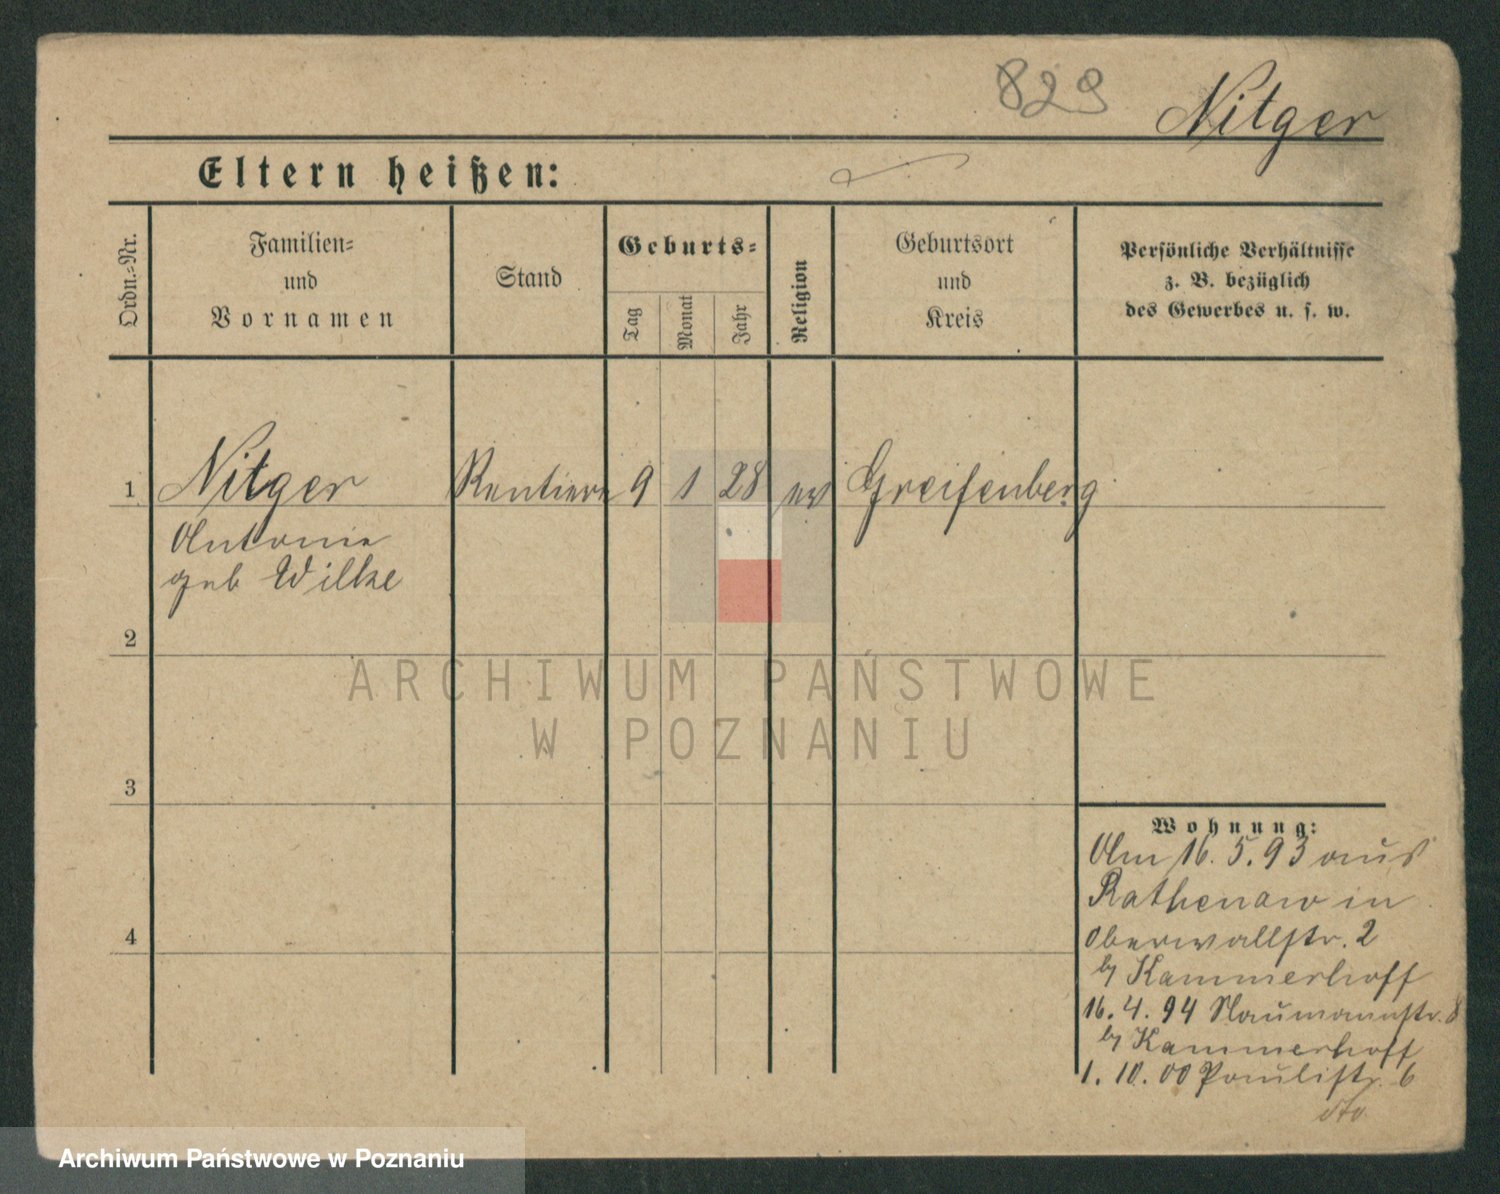 829 Nitger
Eltern heißen:
Ordn.-Nr.
Familien-
und
Vornamen
Stand
Geburts-
Tag
Monat
Jahr
Religion
Geburtsort
und
Kreis
Persönliche Verhältnisse
z. B. bezüglich
des Gewerbes u. s. w.
1 Nitger Rentiere 9 1 28 ev Greifenberg
Antonie
geb Wilke
2
ARCHIWUM PAŃSTWOWE
W POZNANIU
3
Wohnung:
Am 16. 5. 93 aus
Rathenow in
Oberwallstr. 2
4
b/ Kammerhoff
16. 4. 94 Naumannstr. 8
b/ Kammerhoff
1. 10. 00 Paulistr. 6
dto
Archiwum Państwowe w Poznaniu